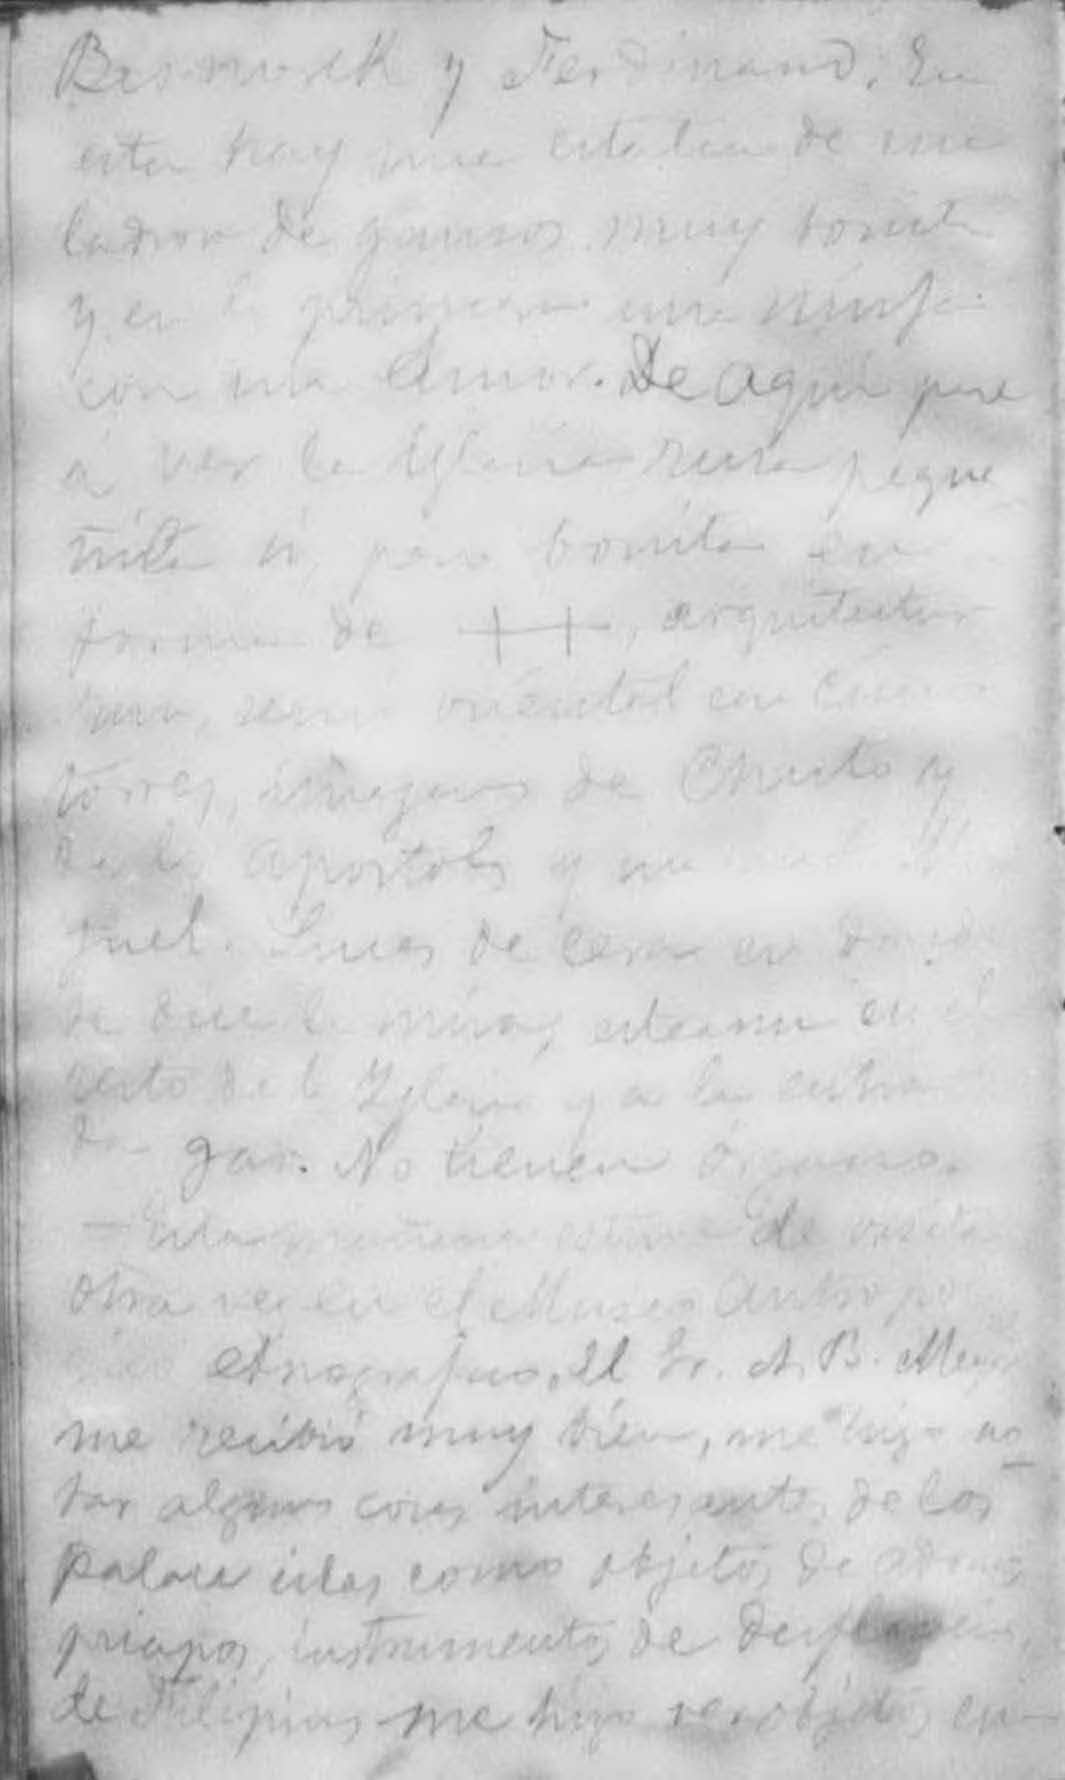 Bismarck y Ferdinand. En
esta hay una estatua de un
ladron de gansos muy bonita
y en la primera una ninfa
con un Amor. De aqui pasé
á ver la Iglesia rusa peque
ñita sí, pero bonita en
forma de ++, arquitectura
rusa, semi oriental con cinco
torres, imágenes de Christo y
de los Apostoles y un
guel. Luces de cera en
de la misa, estearina en el
resto de la Iglesia y a la entra
da gas. No tienen órgano.
— Esta mañana estuve de visita
otra vez en el Museo Antropo
etnografico. El Dr. A. B. Meyer
me recibió muy bien, me hizo no
tar algunas cosas interesantes de las
Palau islas como objetos de adorno,
priapos, instrumentos de desfloracion,
de Filipinas me hizo ver objetos en